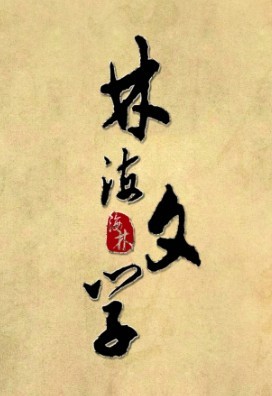 林海
文学
海林